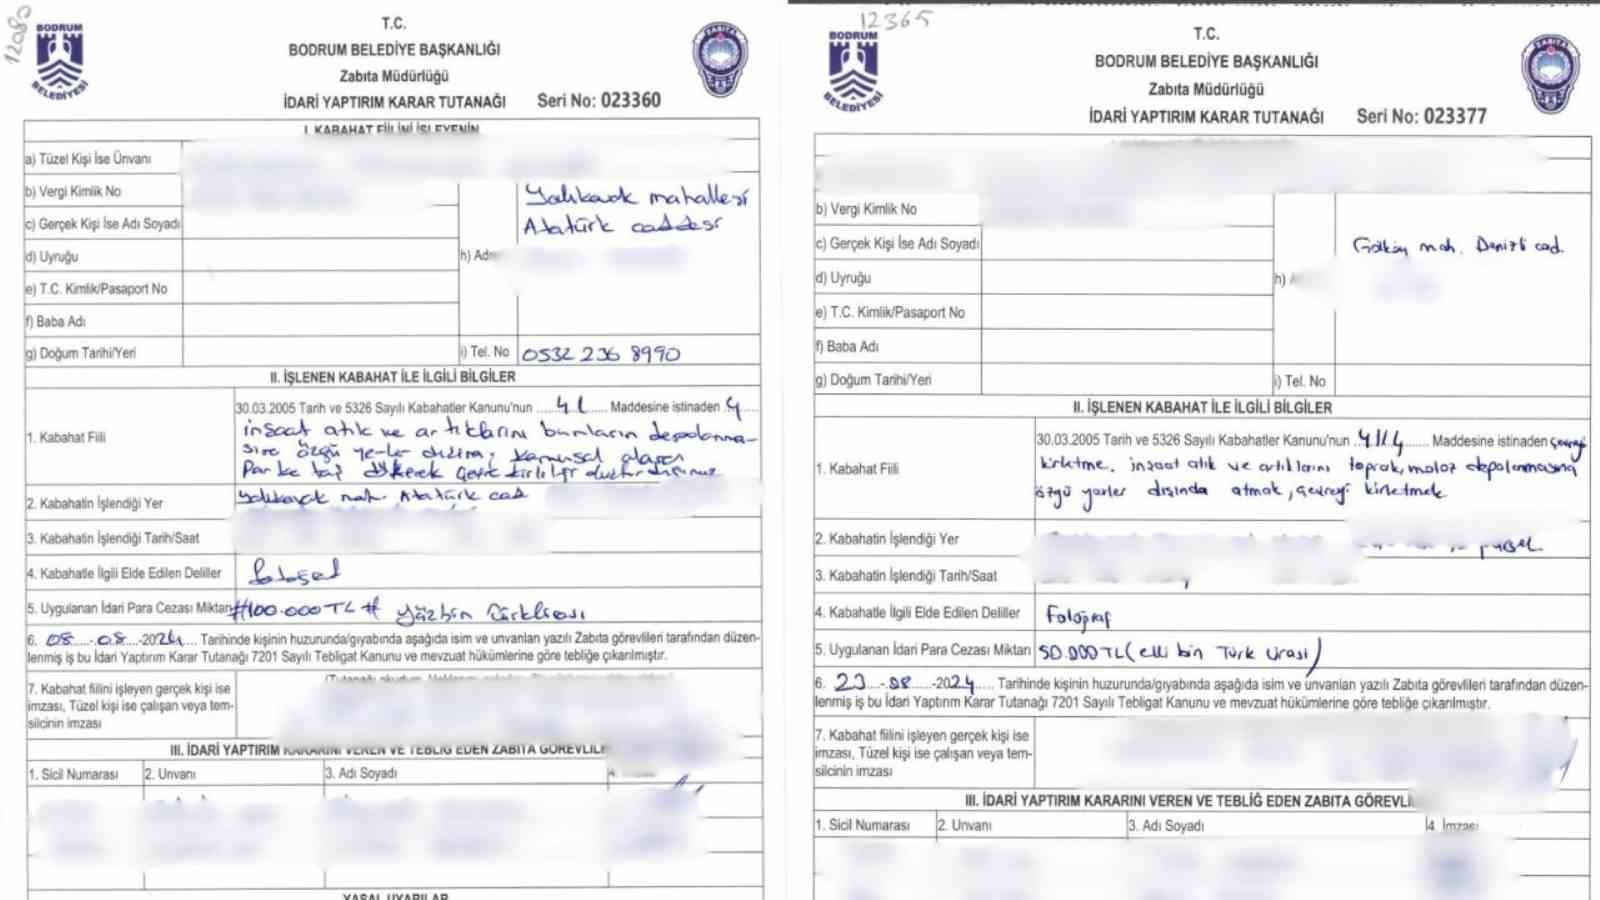 12080
BODRUM
BELEDİYESİ
T.C.
BODRUM BELEDİYE BAŞKANLIĞI
Zabıta Müdürlüğü
İDARİ YAPTIRIM KARAR TUTANAĞI Seri No: 023360
ZABITA
I. KABAHAT FİİLİNİ İŞLEYENİN
a) Tüzel Kişi İse Ünvanı
b) Vergi Kimlik No
c) Gerçek Kişi İse Adı Soyadı
d) Uyruğu
e) T.C. Kimlik/Pasaport No
f) Baba Adı
g) Doğum Tarihi/Yeri
Yalıkavak mahallesi
Atatürk caddesi
h)
i) Tel. No 0532 236 8990
II. İŞLENEN KABAHAT İLE İLGİLİ BİLGİLER
1. Kabahat Fiili
30.03.2005 Tarih ve 5326 Sayılı Kabahatler Kanunu'nun ......41...... Maddesine istinaden 4....
inşaat atık ve artıklarını bunların depolanma-
sına özgü yerler dışına, kamusal alana
Parke taşı dökerek çevre kirliliği
2. Kabahatin İşlendiği Yer Yalıkavak mah. Atatürk cad
3. Kabahatin İşlendiği Tarih/Saat
4. Kabahatle İlgili Elde Edilen Deliller
5. Uygulanan İdari Para Cezası Miktarı #100.000TL# Yüzbin Türklirası
6. 08.....-08.....-2024.... Tarihinde kişinin huzurunda/gıyabında aşağıda isim ve unvanları yazılı Zabıta görevlileri tarafından düzen-
lenmiş iş bu İdari Yaptırım Karar Tutanağı 7201 Sayılı Tebligat Kanunu ve mevzuat hükümlerine göre tebliğe çıkarılmıştır.
7. Kabahat fiilini işleyen gerçek kişi ise
imzası, Tüzel kişi ise çalışan veya tem-
silcinin imzası
III. İDARİ YAPTIRIM KARARINI VEREN VE TEBLİĞ EDEN ZABITA GÖREVLİL
1. Sicil Numarası 2. Unvanı 3. Adı Soyadı 4.
YASAL UYARILAR
12365
BODRUM
BELEDİYESİ
T.C.
BODRUM BELEDİYE BAŞKANLIĞI
Zabıta Müdürlüğü
İDARİ YAPTIRIM KARAR TUTANAĞI Seri No: 023377
ZABITA
b) Vergi Kimlik No
c) Gerçek Kişi İse Adı Soyadı
d) Uyruğu
e) T.C. Kimlik/Pasaport No
f) Baba Adı
g) Doğum Tarihi/Yeri
Gölköy mah. Denizli cad.
h)
i) Tel. No
II. İŞLENEN KABAHAT İLE İLGİLİ BİLGİLER
1. Kabahat Fiili
30.03.2005 Tarih ve 5326 Sayılı Kabahatler Kanunu'nun ..41/4....... Maddesine istinaden çevreyi
kirletme, inşaat atık ve artıklarını toprak, moloz depolanmasına
özgü yerler dışında atmak, çevreyi kirletmek
2. Kabahatin İşlendiği Yer
3. Kabahatin İşlendiği Tarih/Saat
4. Kabahatle İlgili Elde Edilen Deliller Fotoğraf
5. Uygulanan İdari Para Cezası Miktarı 50.000TL (elli bin Türk lirası)
6. 23....-08.....-2024..... Tarihinde kişinin huzurunda/gıyabında aşağıda isim ve unvanları yazılı Zabıta görevlileri tarafından düzen-
lenmiş iş bu İdari Yaptırım Karar Tutanağı 7201 Sayılı Tebligat Kanunu ve mevzuat hükümlerine göre tebliğe çıkarılmıştır.
7. Kabahat fiilini işleyen gerçek kişi ise
imzası, Tüzel kişi ise çalışan veya tem-
silcinin imzası
III. İDARİ YAPTIRIM KARARINI VEREN VE TEBLİĞ EDEN ZABITA GÖREVLİ
1. Sicil Numarası 2. Unvanı 3. Adı Soyadı 4. İmzası